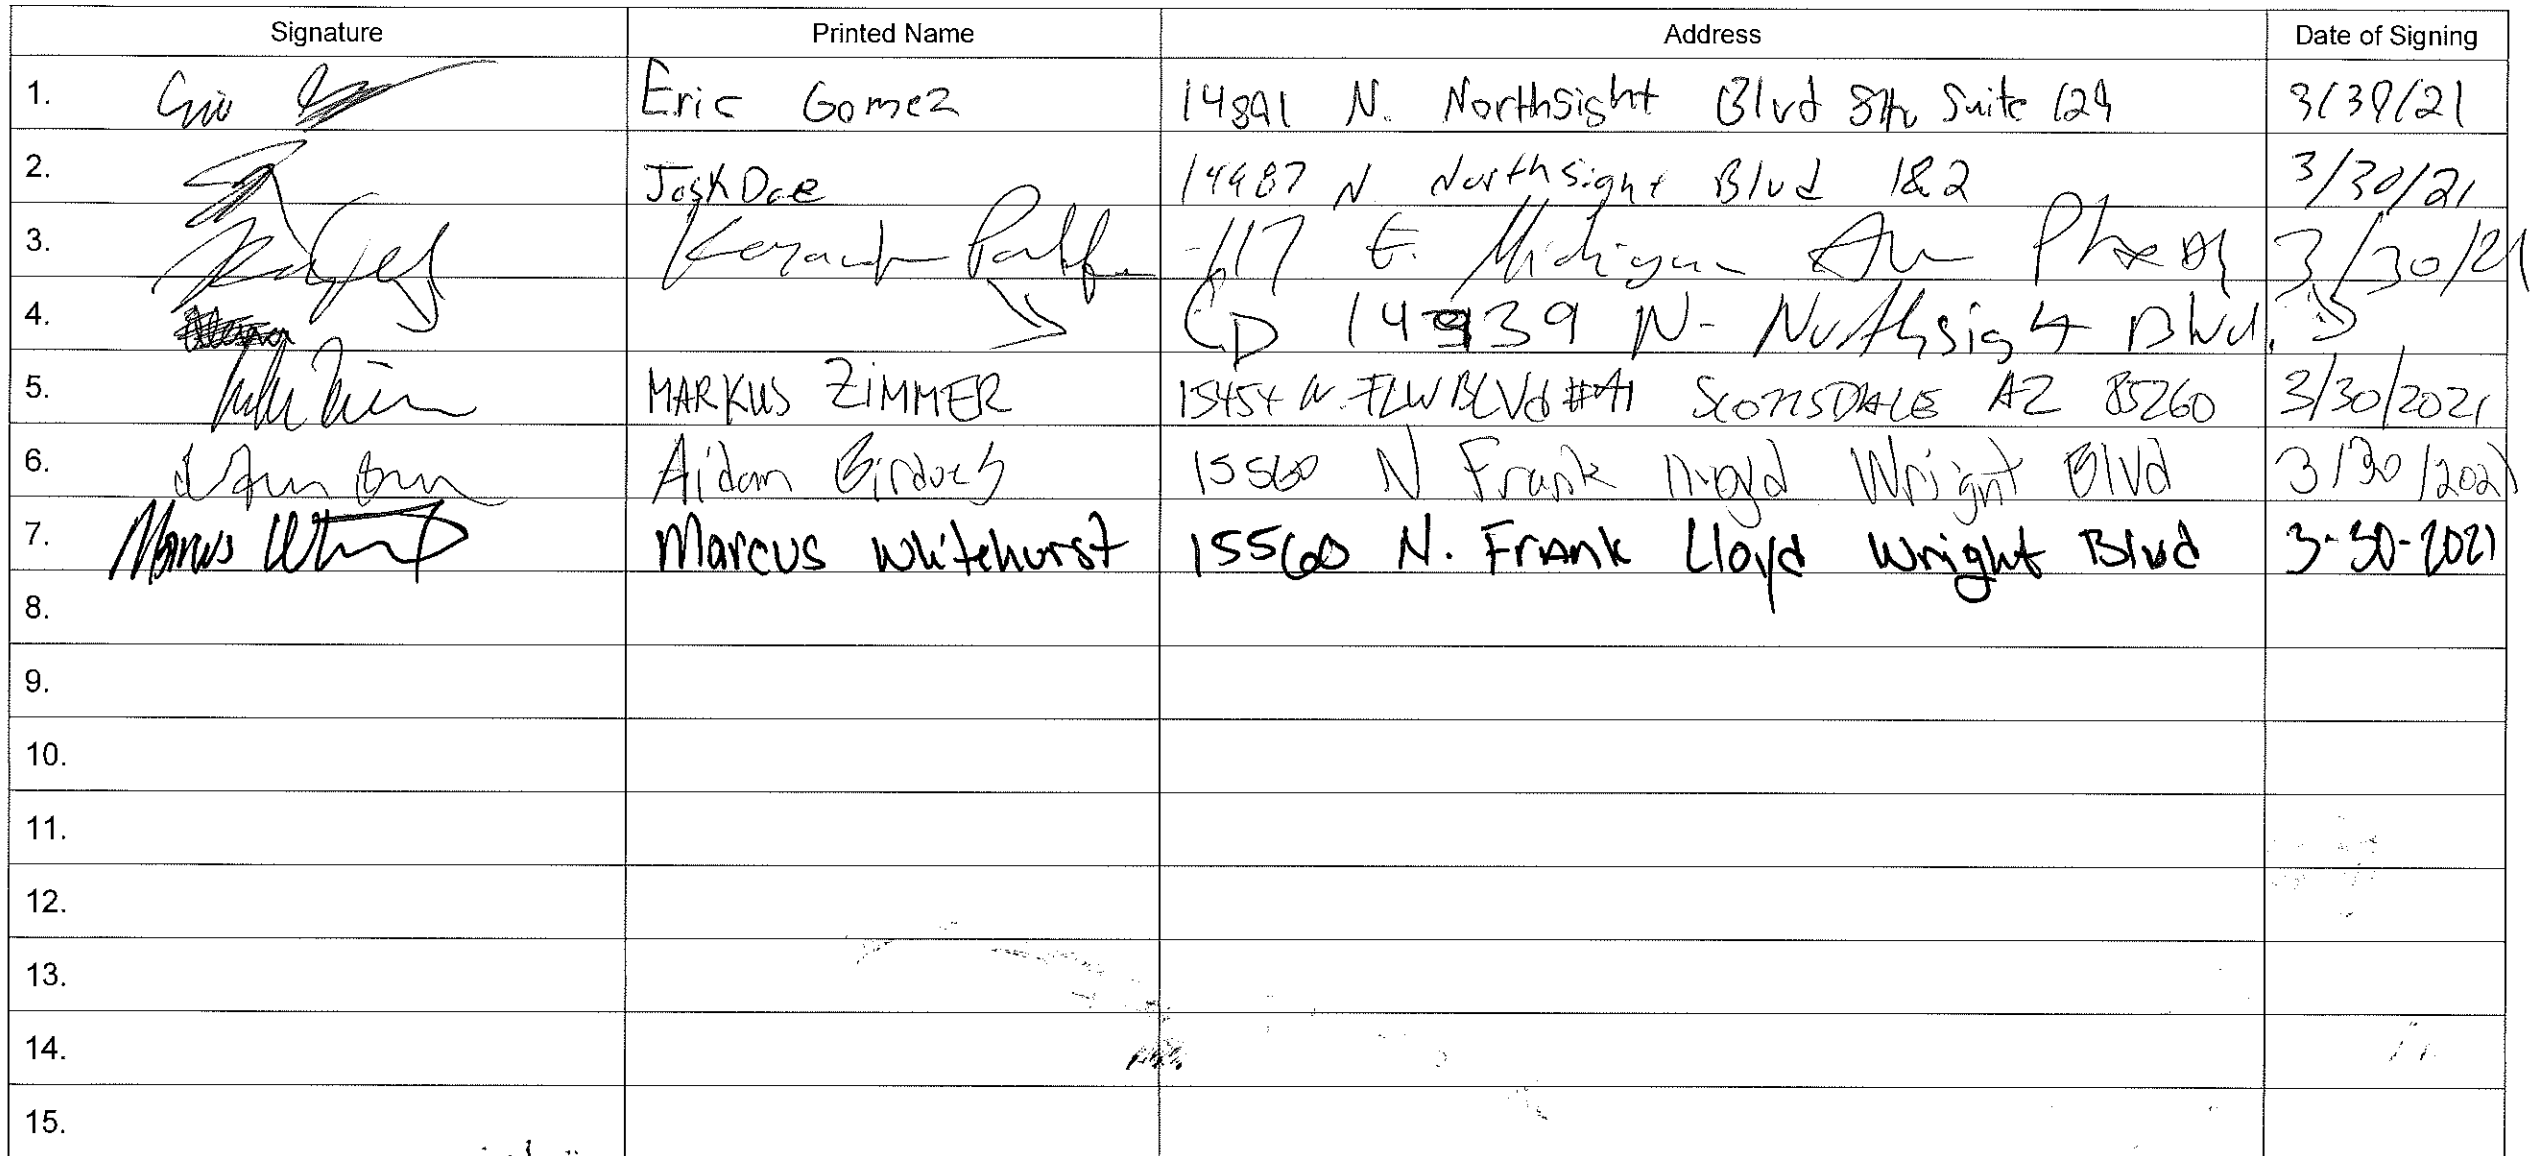 Signature Printed Name Address Date of Signing
1. Eric Gomez 14891 N. Northsight Blvd Suite 124 3/30/21
2. Josh Doe 14987 N Northsight Blvd 1&2 3/30/21
3. E. Michigan Ave 3/30/21
4. 14939 N- Northsight Blvd.
5. MARKUS ZIMMER 15454 N. FLW BLVd #A1 SCOTTSDALE AZ 85260 3/30/2021
6. Aidan 15560 N Frank lloyd Wright Blvd 3/30/2021
7. Marcus Whitehurst Marcus Whitehurst 15560 N. Frank Lloyd Wright Blvd 3-30-2021
8.
9.
10.
11.
12.
13.
14.
15.